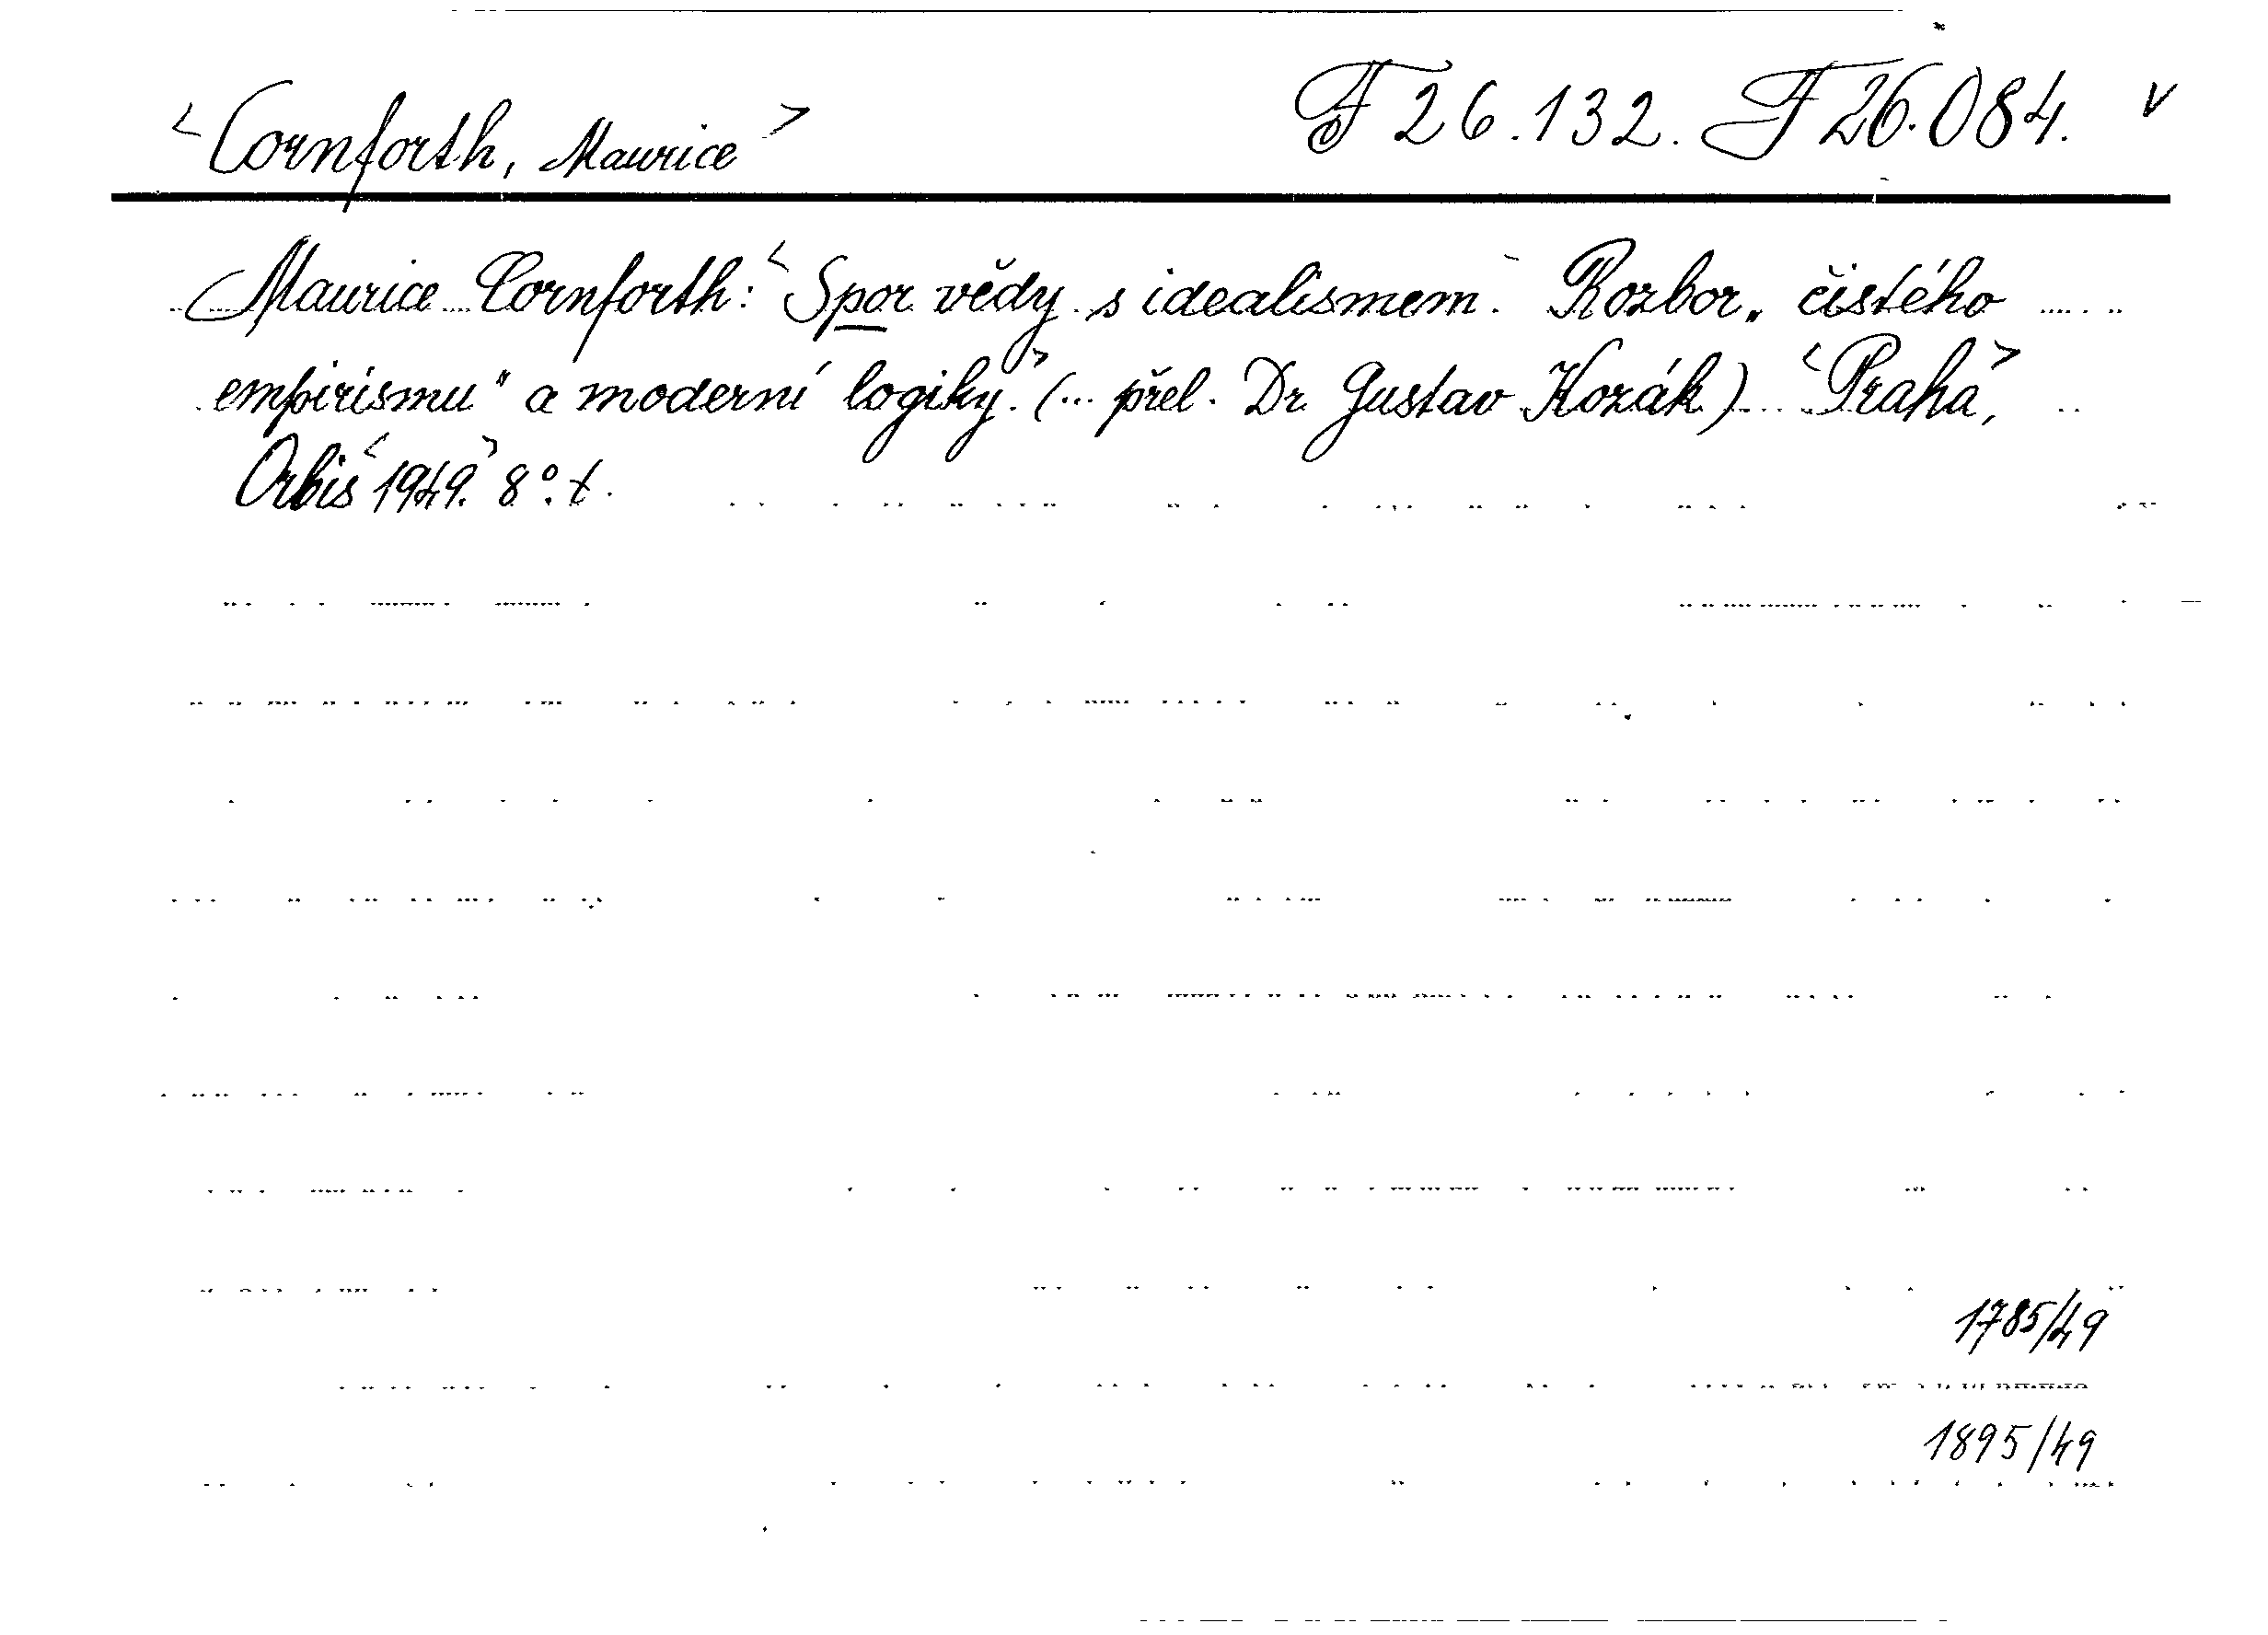 <Cornforth, Maurice> F 26.132. F 26.084. v
Maurice Cornforth: <Spor vědy s idealismem. Rozbor „čistého
empirismu" a moderní logiky.> (... přel. Dr Gustav Kozák) <Praha,>
Orbis <1949.> 8°. t.
1785/49
1895/49